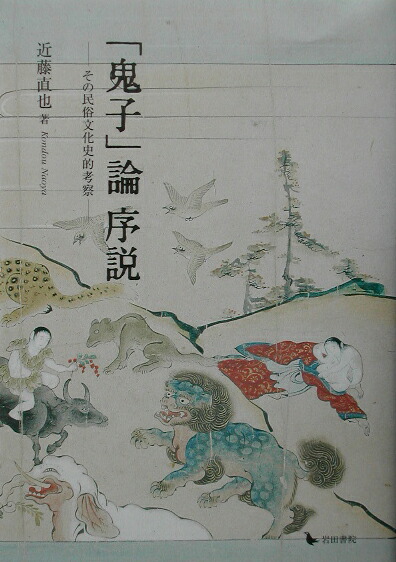 「鬼子」論 序説
――その民俗文化史的考察
近藤直也 著 Kondou Naoya
岩田書院